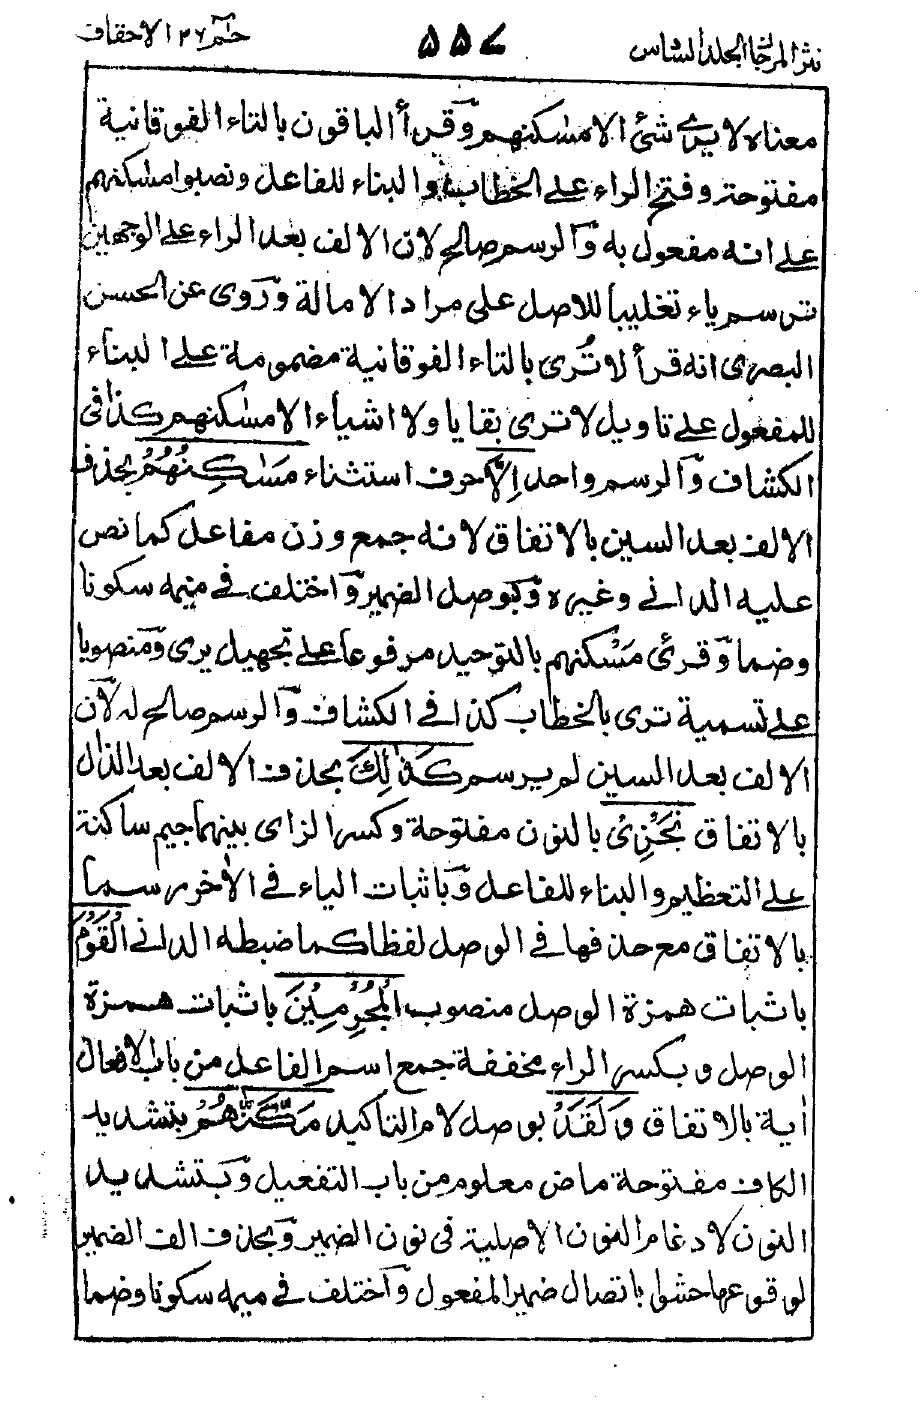 نثر المرجان المجلد السادس ٥٥٧ حٰم ٢٦ الاحقاف
معناه لا يرى شئ الا مسٰكنهم وقرأ الباقون بالتاء الفوقانية
مفتوحة وفتح الراء على الخطاب والبناء للفاعل ونصبوا مسٰكنهم
على انه مفعول به والرسم صالح لان الالف بعد الراء على الوجهين
ترسم ياء تغليبا للاصل على مراد الامالة وروى عن الحسن
البصرى انه قرأ لا تُرى بالتاء الفوقانية مضمومة على البناء
للمفعول على تاويل لا ترى بقايا ولا اشياء الا مسٰكنهم كذا فى
الكشاف والرسم واحد اِلَّا حرف استثناء مَسٰكِنُهُمْ بحذف
الالف بعد السين بالاتفاق لانه جمع وزن مفاعل كما نص
عليه الدانى وغيره وبوصل الضمير واختلف فى ميمه سكونا
وضما وقرئ مَسْكنهم بالتوحيد مرفوعا على تجهيل يرى ومنصوبا
على تسمية ترى بالخطاب كذا فى الكشاف والرسم صالح له لان
الالف بعد السين لم يرسم كَذٰلِكَ بحذف الالف بعد الذال
بالاتفاق نَجْزِىْ بالنون مفتوحة وكسر الزاى بينهما جيم ساكنة
على التعظيم والبناء للفاعل وباثبات الياء فى الاٰخر رسما
بالاتفاق مع حذفها فى الوصل لفظا كما ضبطه الدانى الْقَوْمَ
باثبات همزة الوصل منصوب الْمُجْرِمِيْنَ باثبات همزة
الوصل وبكسر الراء مخففة جمع اسم الفاعل من باب الافعال
اٰية بالاتفاق وَلَقَدْ بوصل لام التاكيد مَكَّنّٰهُمْ بتشديد
الكاف مفتوحة ماض معلوم من باب التفعيل وبتشديد
النون لادغام النون الاصلية فى نون الضمير وبحذف الف الضمير
لوقوعها حشوا باتصال ضمير المفعول واختلف فى ميمه سكونا وضما